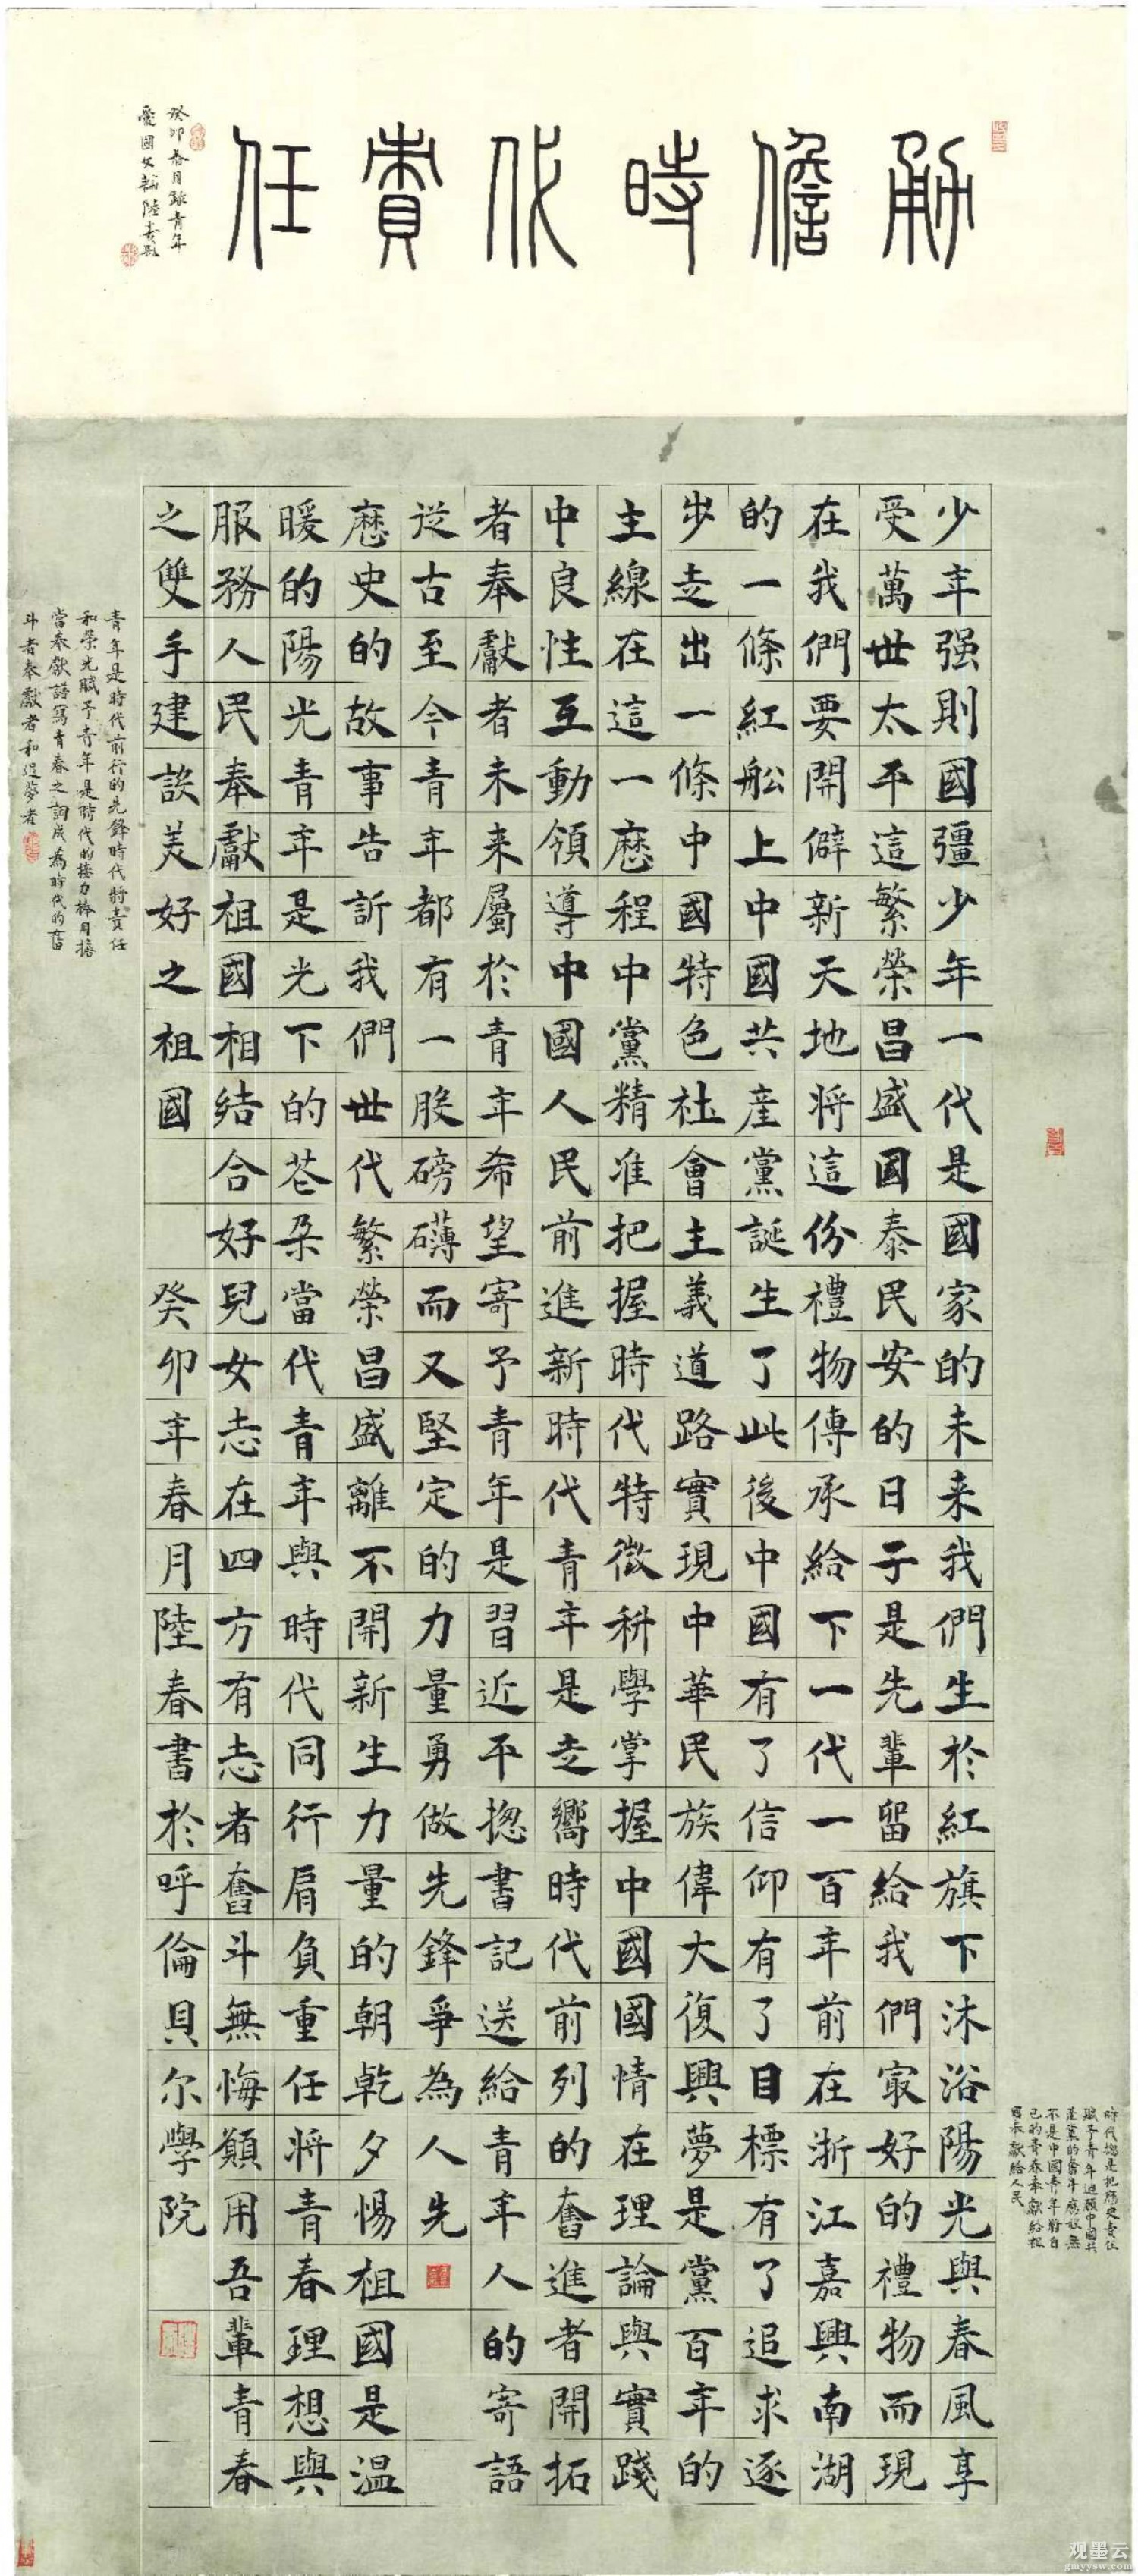 勇擔時代責任
癸卯春月錄青年
愛國文
少年强則國彊少年一代是國家的未来我們生於紅旗下沐浴陽光與春風享
受萬世太平這繁榮昌盛國泰民安的日子是先輩留給我們冣好的禮物而現
在我們要開僻新天地将這份禮物傳承給下一代一百年前在浙江嘉興南湖
的一條紅舩上中國共産黨誕生了此後中國有了信仰有了目標有了追求逐
步走出一條中國特色社會主義道路實現中華民族偉大復興夢是黨百年的
主線在這一歷程中黨精准把握時代特徵科學掌握中國國情在理論與實踐
中良性互動領導中國人民前進新時代青年是走嚮時代前列的奮進者開拓
者奉獻者未来屬於青年希望寄予青年是習近平揔書記送給青年人的寄語
從古至今青年都有一股磅礴而又堅定的力量勇做先鋒爭為人先
歷史的故事告訴我們世代繁榮昌盛離不開新生力量的朝乾夕惕祖國是温
暖的陽光青年是光下的花朵當代青年與時代同行肩負重任将青春理想與
服務人民奉獻祖國相结合好兒女志在四方有志者奮斗無悔願用吾輩青春
之雙手建設美好之祖國 癸卯年春月陸春書於呼倫貝尔學院
青年是時代前行的先鋒時代將責任
和榮光賦予青年是時代的接力棒用擔
當奉獻譜寫青春之詞成為時代的奮
斗者奉獻者和追夢者
時代總是把歷史責任
賦予青年迴顧中國共
産黨的百年歷程無
不是中國青年將自
己的青春奉獻給祖
國奉獻給人民
观墨云
gmyysw.com